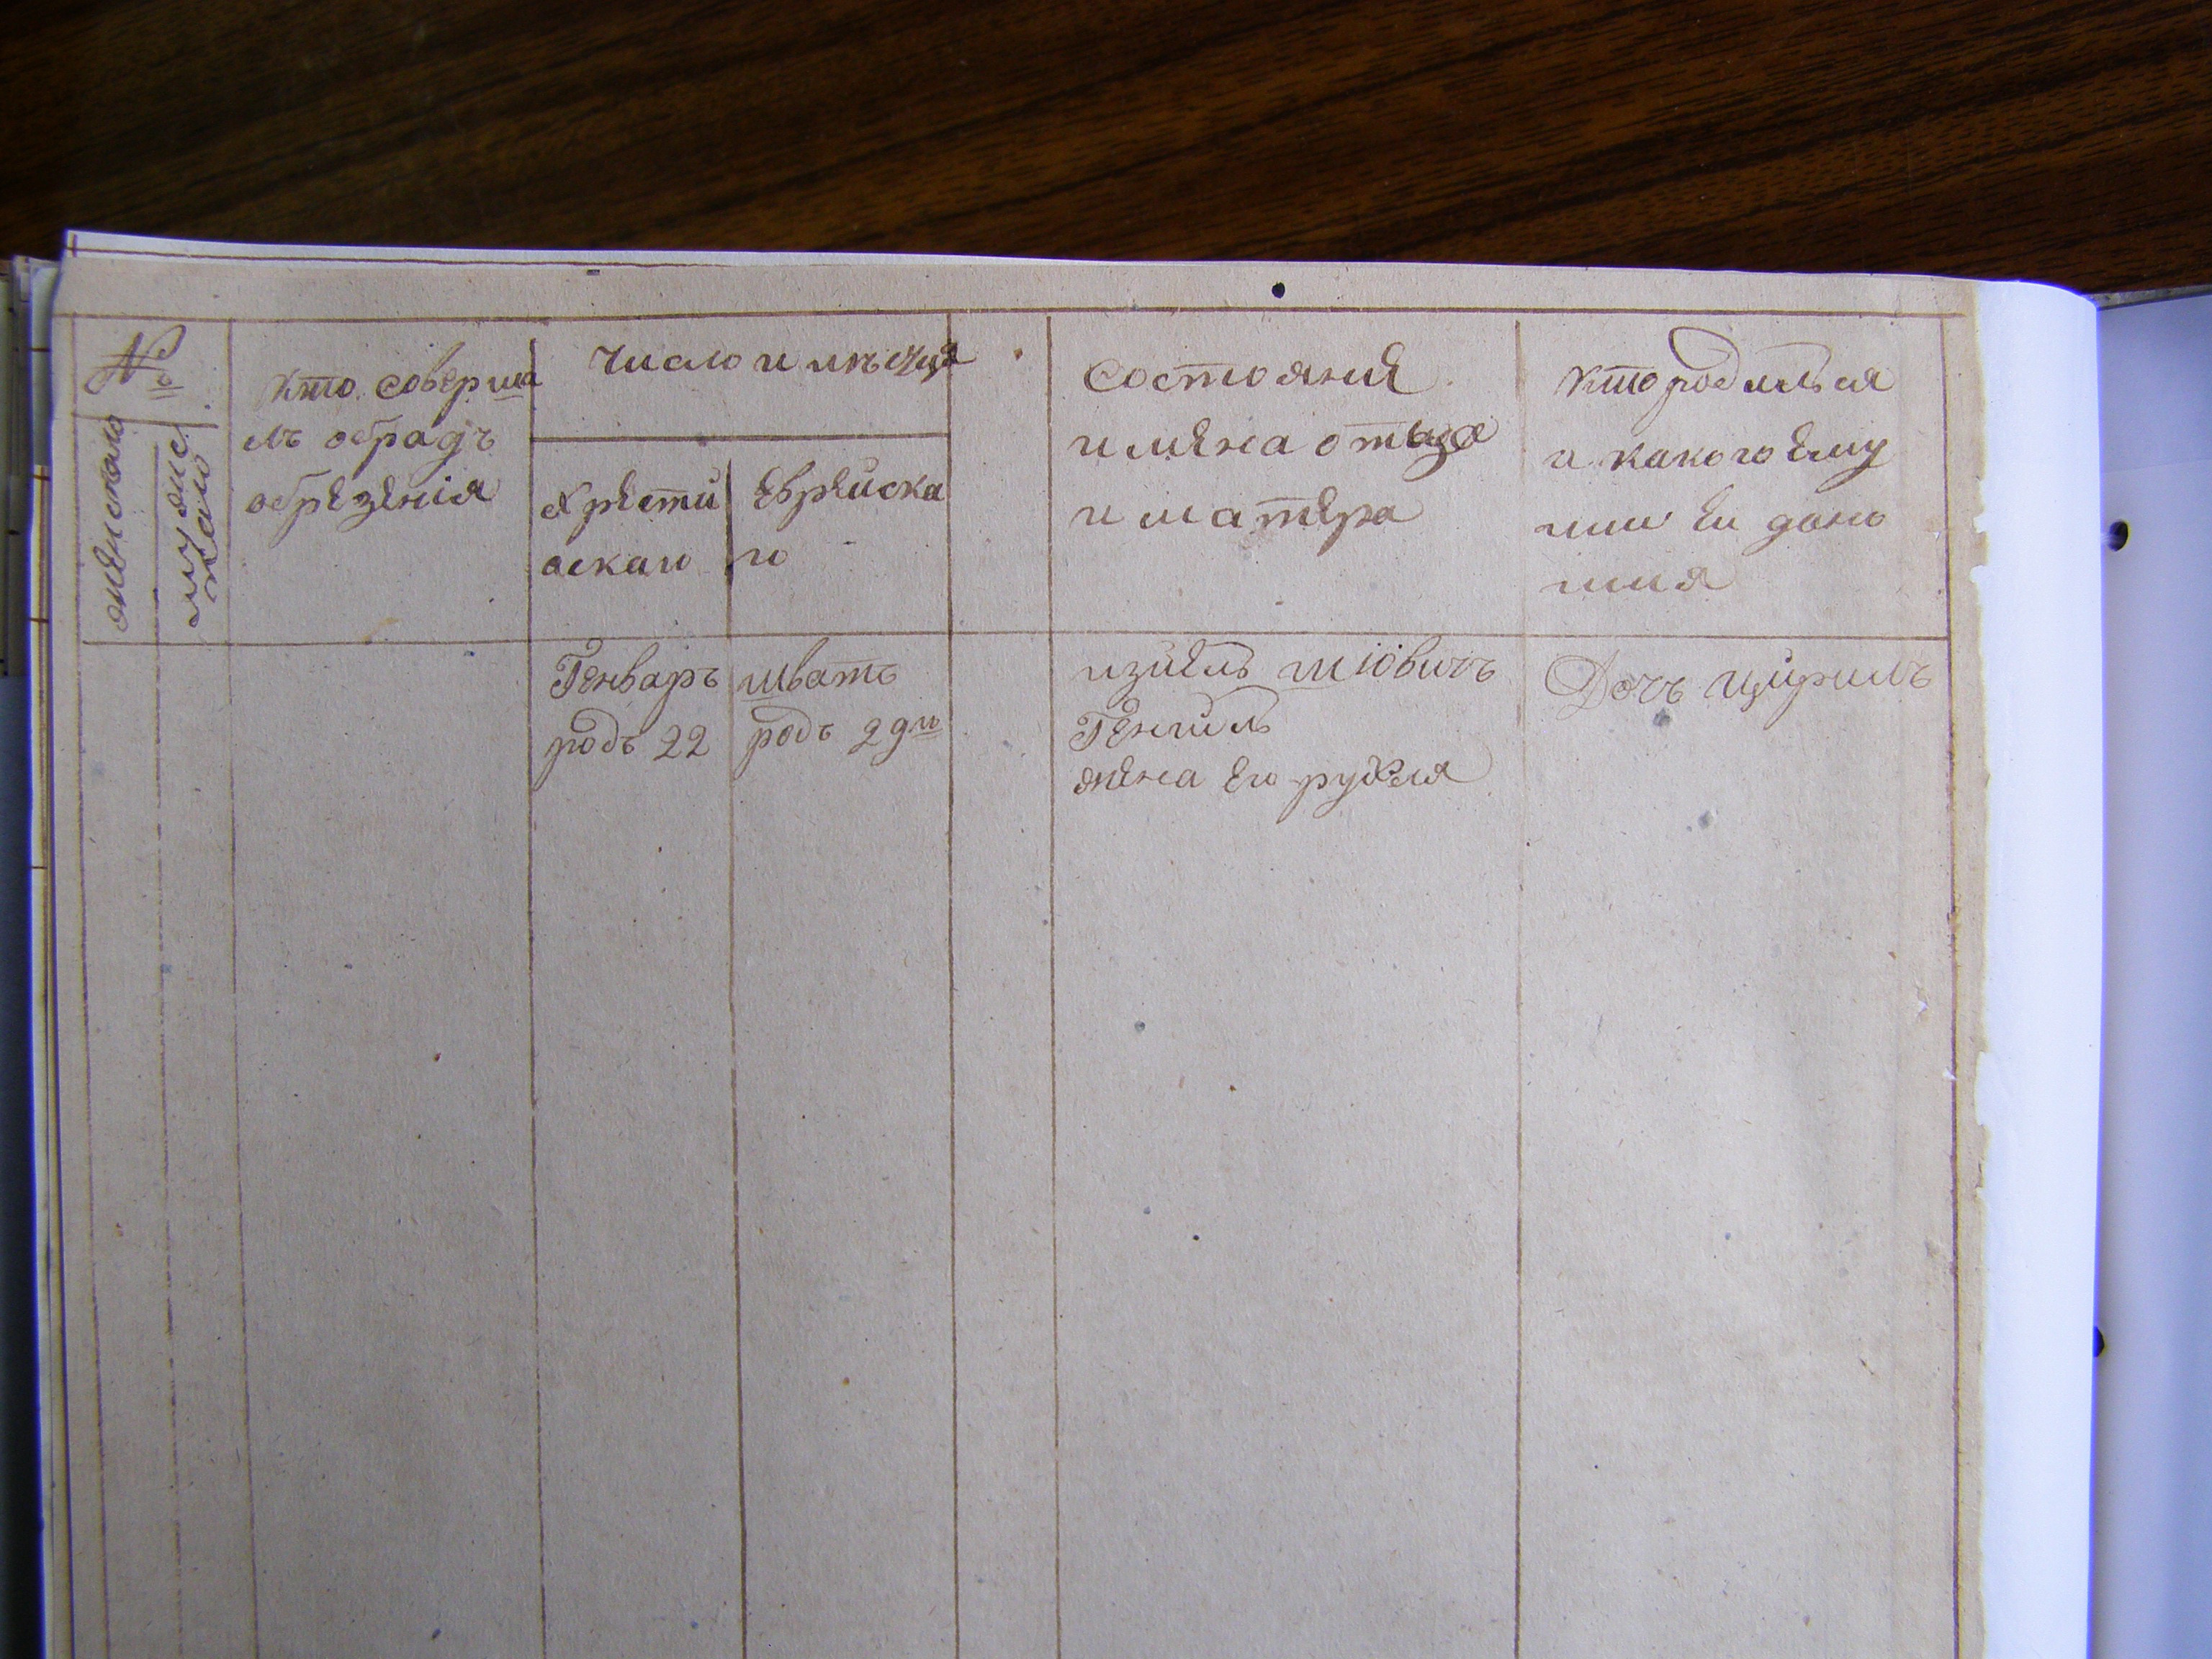 №
женскаго
мужес
каго
кто соверша
лъ обрадъ
обрезѣния
Число и мѣсяца
христи
аскаго
Еврейска
го
состояния
и имена отца
и матера
кто родилься
и какого ему
или ей дано
имя
Генваръ
родъ 22
шватъ
родъ 2 дня
изиель
Генхиль
жена его рухля
Дочъ Цирилъ